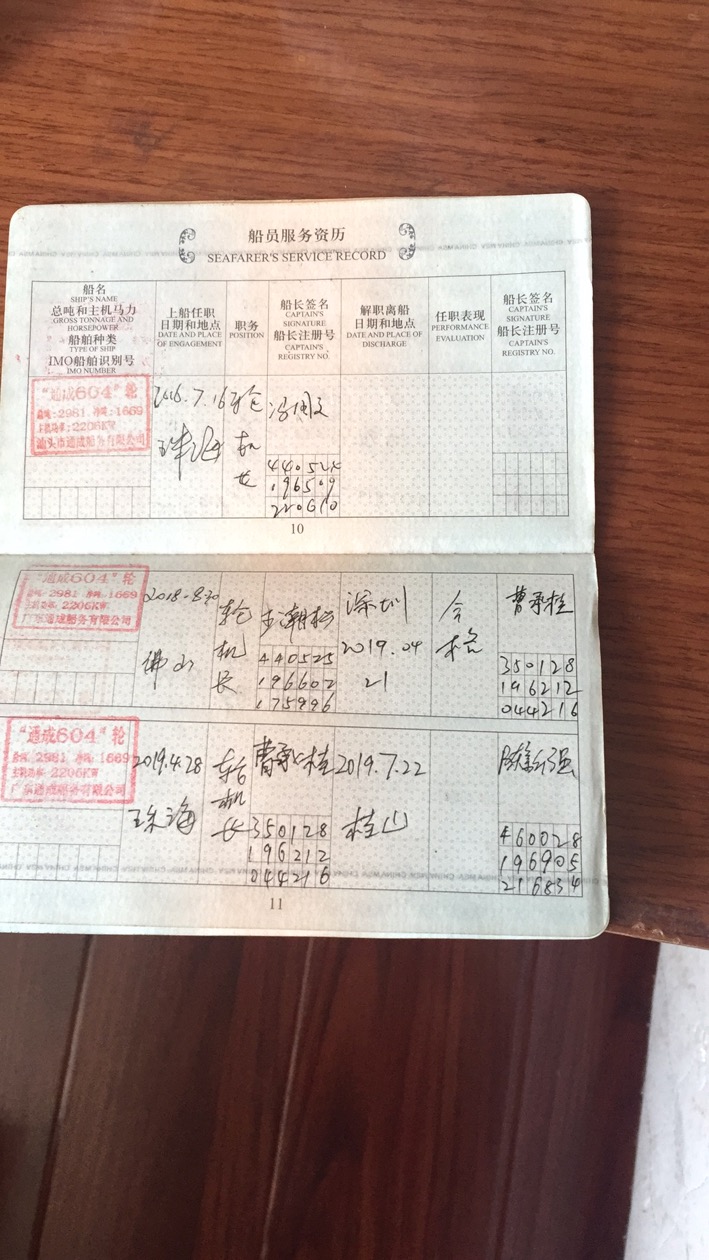 船员服务资历
SEAFARER'S SERVICE RECORD
船名
SHIP'S NAME
总吨和主机马力
GROSS TONNAGE AND
HORSEPOWER
船舶种类
TYPE OF SHIP
IMO船舶识别号
IMO NUMBER
上船任职
日期和地点
DATE AND PLACE
OF ENGAGEMENT
职务
POSITION
船长签名
CAPTAIN'S
SIGNATURE
船长注册号
CAPTAIN'S
REGISTRY NO.
解职离船
日期和地点
DATE AND PLACE OF
DISCHARGE
任职表现
PERFORMANCE
EVALUATION
船长签名
CAPTAIN'S
SIGNATURE
船长注册号
CAPTAIN'S
REGISTRY NO.
"通成604"轮
总吨:2981 净吨:1669
主机功率:2206KW
汕头市通成船务有限公司
2016.7.16
珠海
轮
机
长
196509
220610
10
"通成604"轮
总吨:2981 净吨:1669
主机功率:2206KW
广东通成船务有限公司
2018-8.30
佛山
轮
机
长
440525
196602
175996
深圳
2019.04
21
合
格
曹承桂
350128
196212
044216
"通成604"轮
总吨:2981 净吨:1669
主机功率:2206KW
广东通成船务有限公司
2019.4.28
珠海
轮
机
长
曹承桂
350128
196212
044216
2019.7.22
桂山
陈新强
460028
196905
216834
11